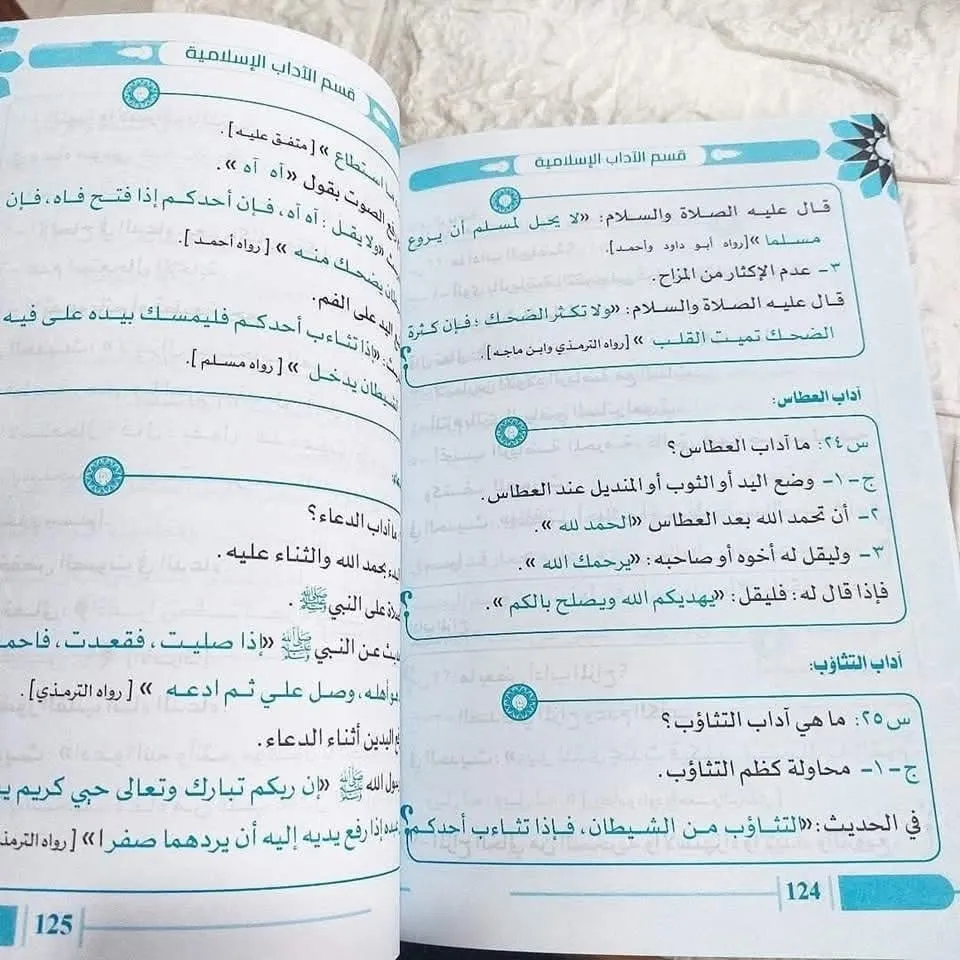 قسم الآداب الإسلامية
قال عليه الصلاة والسلام: «لا يحل لمسلم أن يروع
مسلما »[رواه أبو داود وأحمد].
٣- عدم الإكثار من المزاح.
قال عليه الصلاة والسلام: «ولا تكثر الضحك ؛ فإن كثرة
الضحك تميت القلب » [رواه الترمذي وابن ماجه].
آداب العطاس:
س٢٤: ما آداب العطاس؟
ج-١- وضع اليد أو الثوب أو المنديل عند العطاس.
٢- أن تحمد الله بعد العطاس «الحمد لله ».
٣- وليقل له أخوه أو صاحبه: «يرحمك الله ».
فإذا قال له: فليقل: «يهديكم الله ويصلح بالكم».
آداب التثاؤب:
س٢٥: ما هي آداب التثاؤب؟
ج-١- محاولة كظم التثاؤب.
في الحديث: «التثاؤب من الشيطان، فإذا تثاءب أحدكم
124
قسم الآداب الإسلامية
استطاع » [متفق عليه].
الصوت بقول «آه آه ».
«ولا يقل : آه آه، فإن أحدكم إذا فتح فاه، فإن
يضحك منه » [رواه أحمد].
اليد على الفم.
«إذا تثاءب أحدكم فليمسك بيده على فيه
الشيطان يدخل » [رواه مسلم].
ما آداب الدعاء؟
بحمد الله والثناء عليه.
على النبي ﷺ .
عن النبي ﷺ «إذا صليت، فقعدت، فاحمد
هو أهله، وصل علي ثم ادعه » [رواه الترمذي].
اليدين أثناء الدعاء.
رسول الله ﷺ «إن ربكم تبارك وتعالى حيي كريم
إذا رفع يديه إليه أن يردهما صفرا» [رواه
125